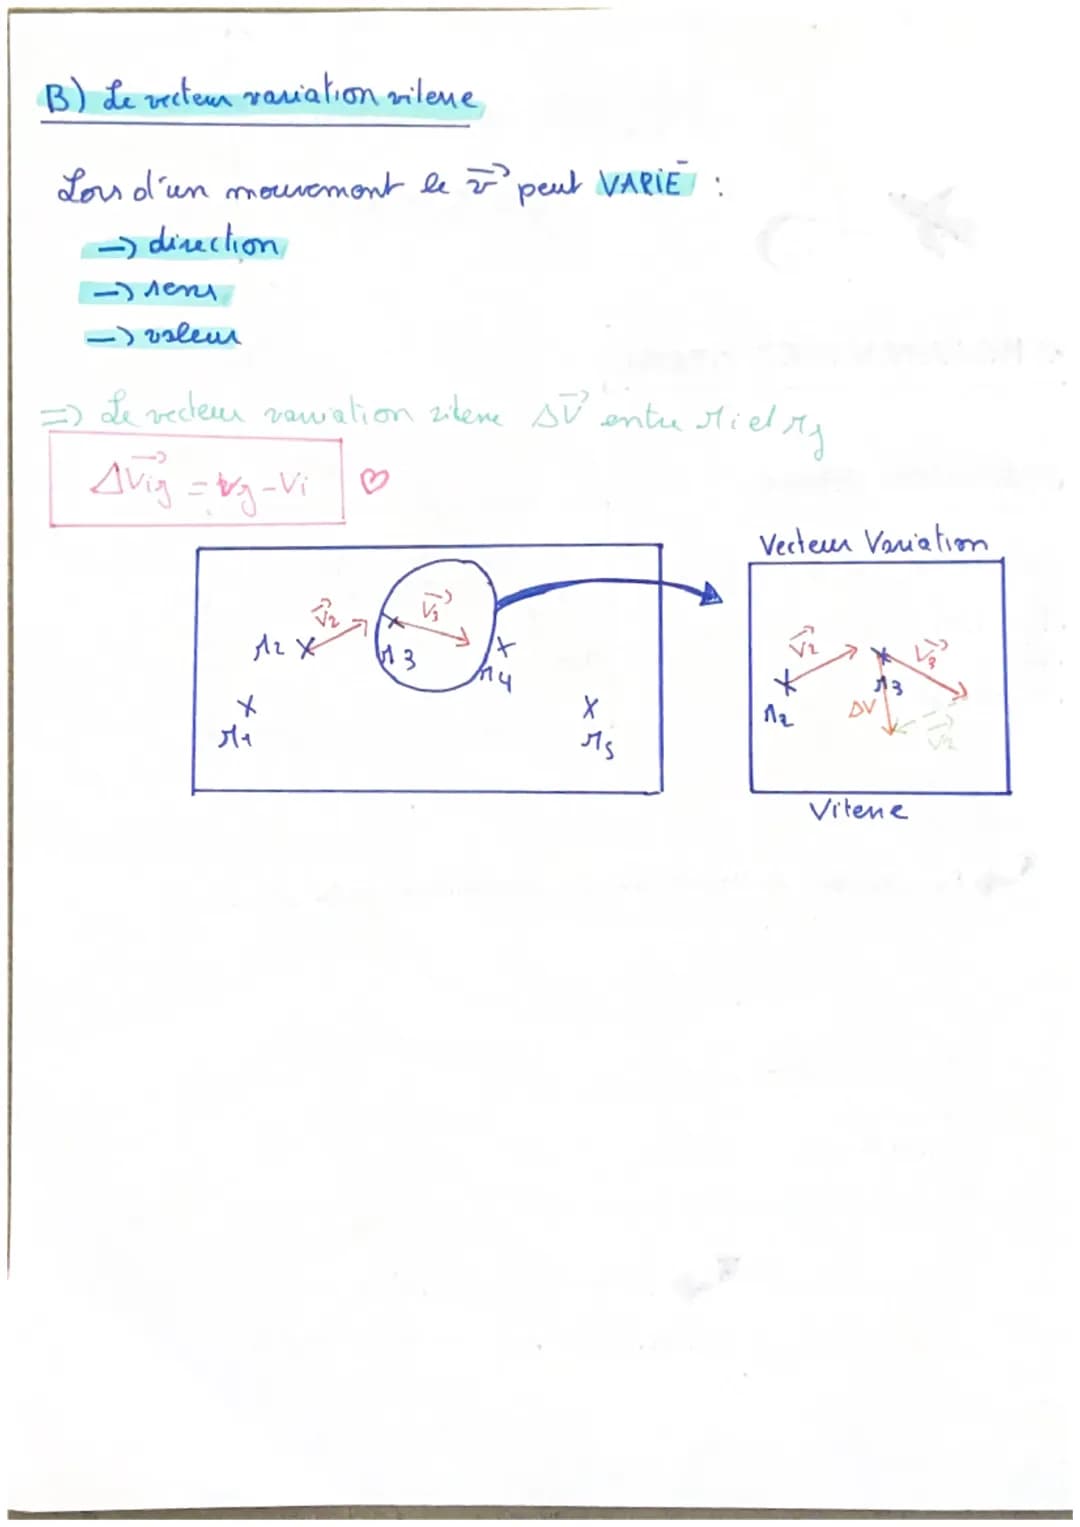 B) Le vecteur variation vitesse
Lors d'un mouvement le v⃗ peut VARIÉ :
→ direction
→ sens
→ valeur
=> Le vecteur variation vitesse ΔV⃗ entre Mi et Mj
ΔVij⃗ = vj - Vi ♡
Vecteur Variation
V⃗2
V⃗3
M2
M3
M4
M1
M5
V⃗2
V⃗3
M2
M3
ΔV
V⃗2
Vitesse